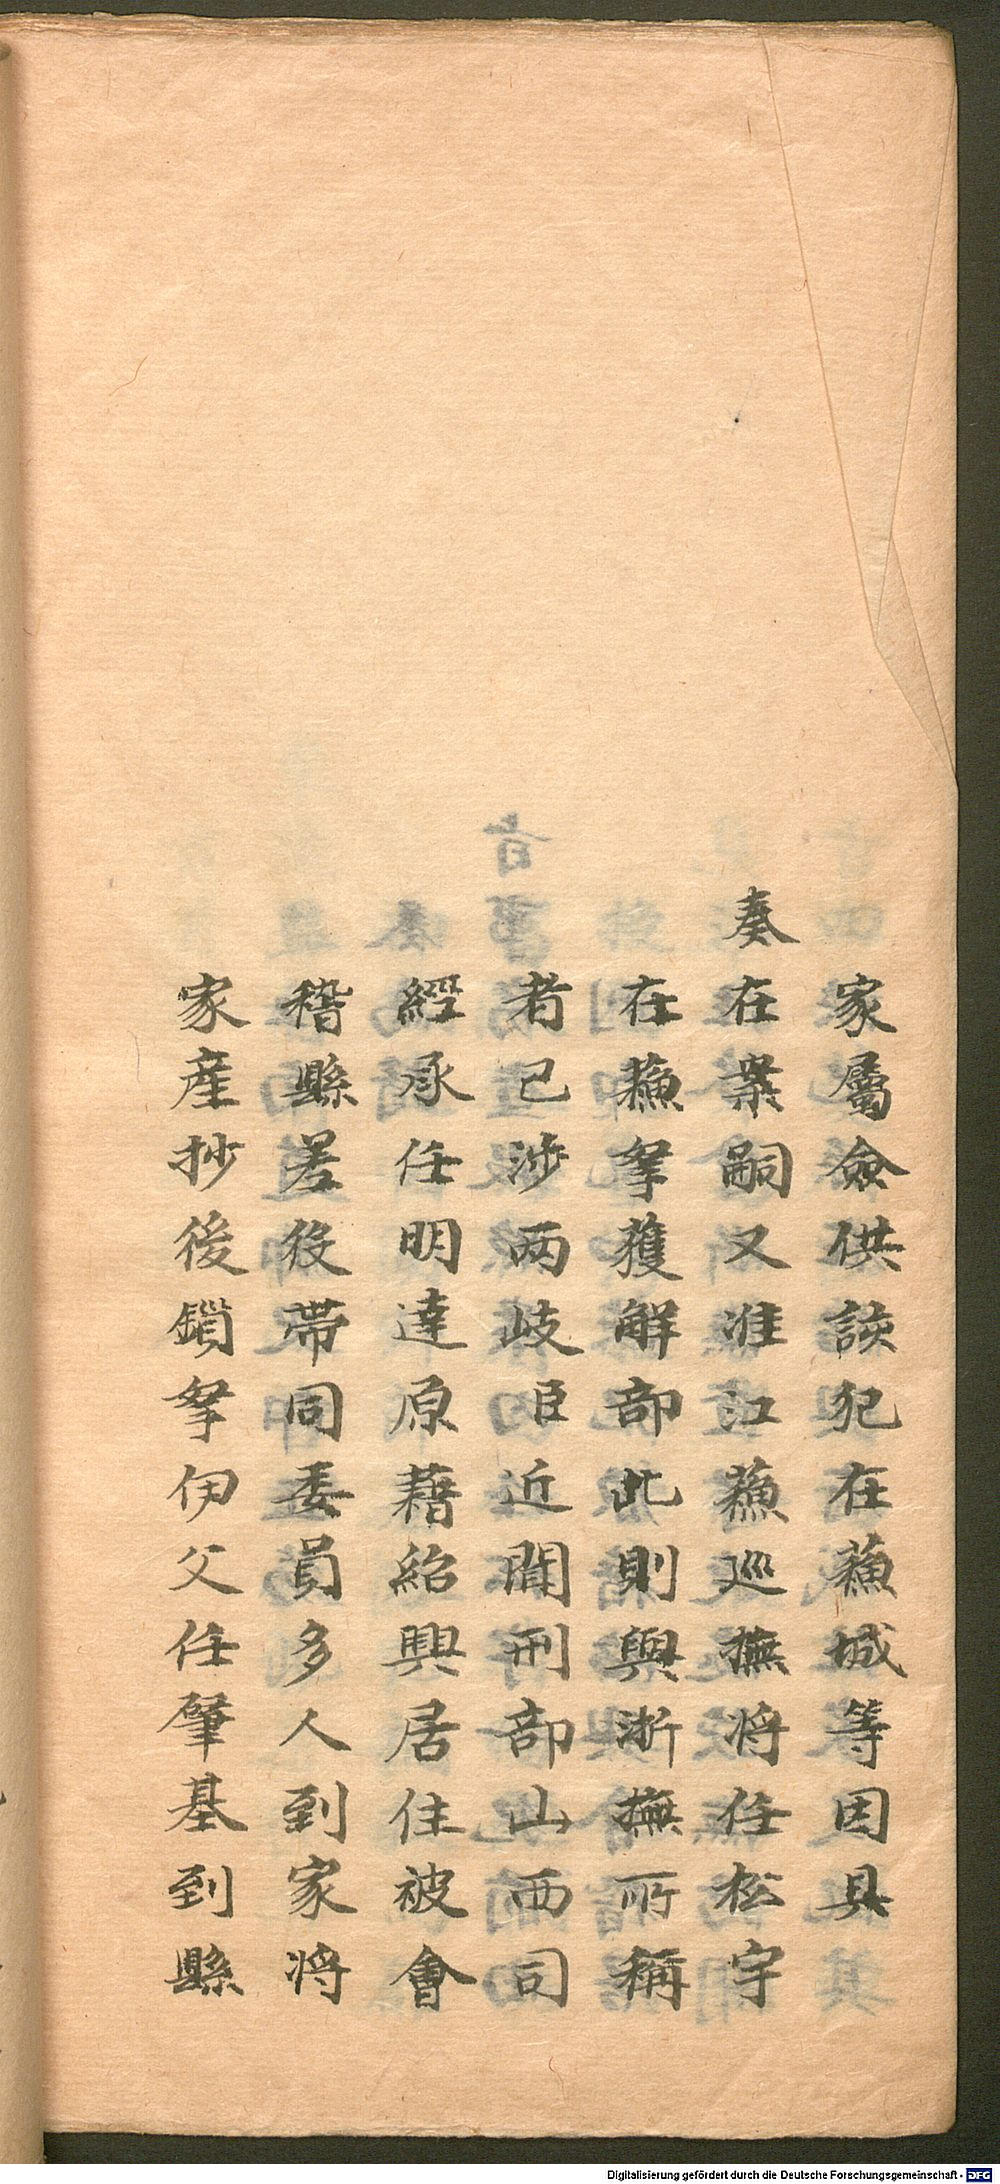 家屬僉供該犯在蘇城等因具
奏在案嗣又准江蘇巡撫將任松宇
在蘇拏獲解部此則與浙撫所稱
者已涉两岐臣近聞刑部山西司
經承任明達原藉紹興居住被會
稽縣差役帶同委員多人到家將
家產抄後鎖拏伊父任肇基到縣
Digitalisierung gefördert durch die Deutsche Forschungsgemeinschaft - DFG